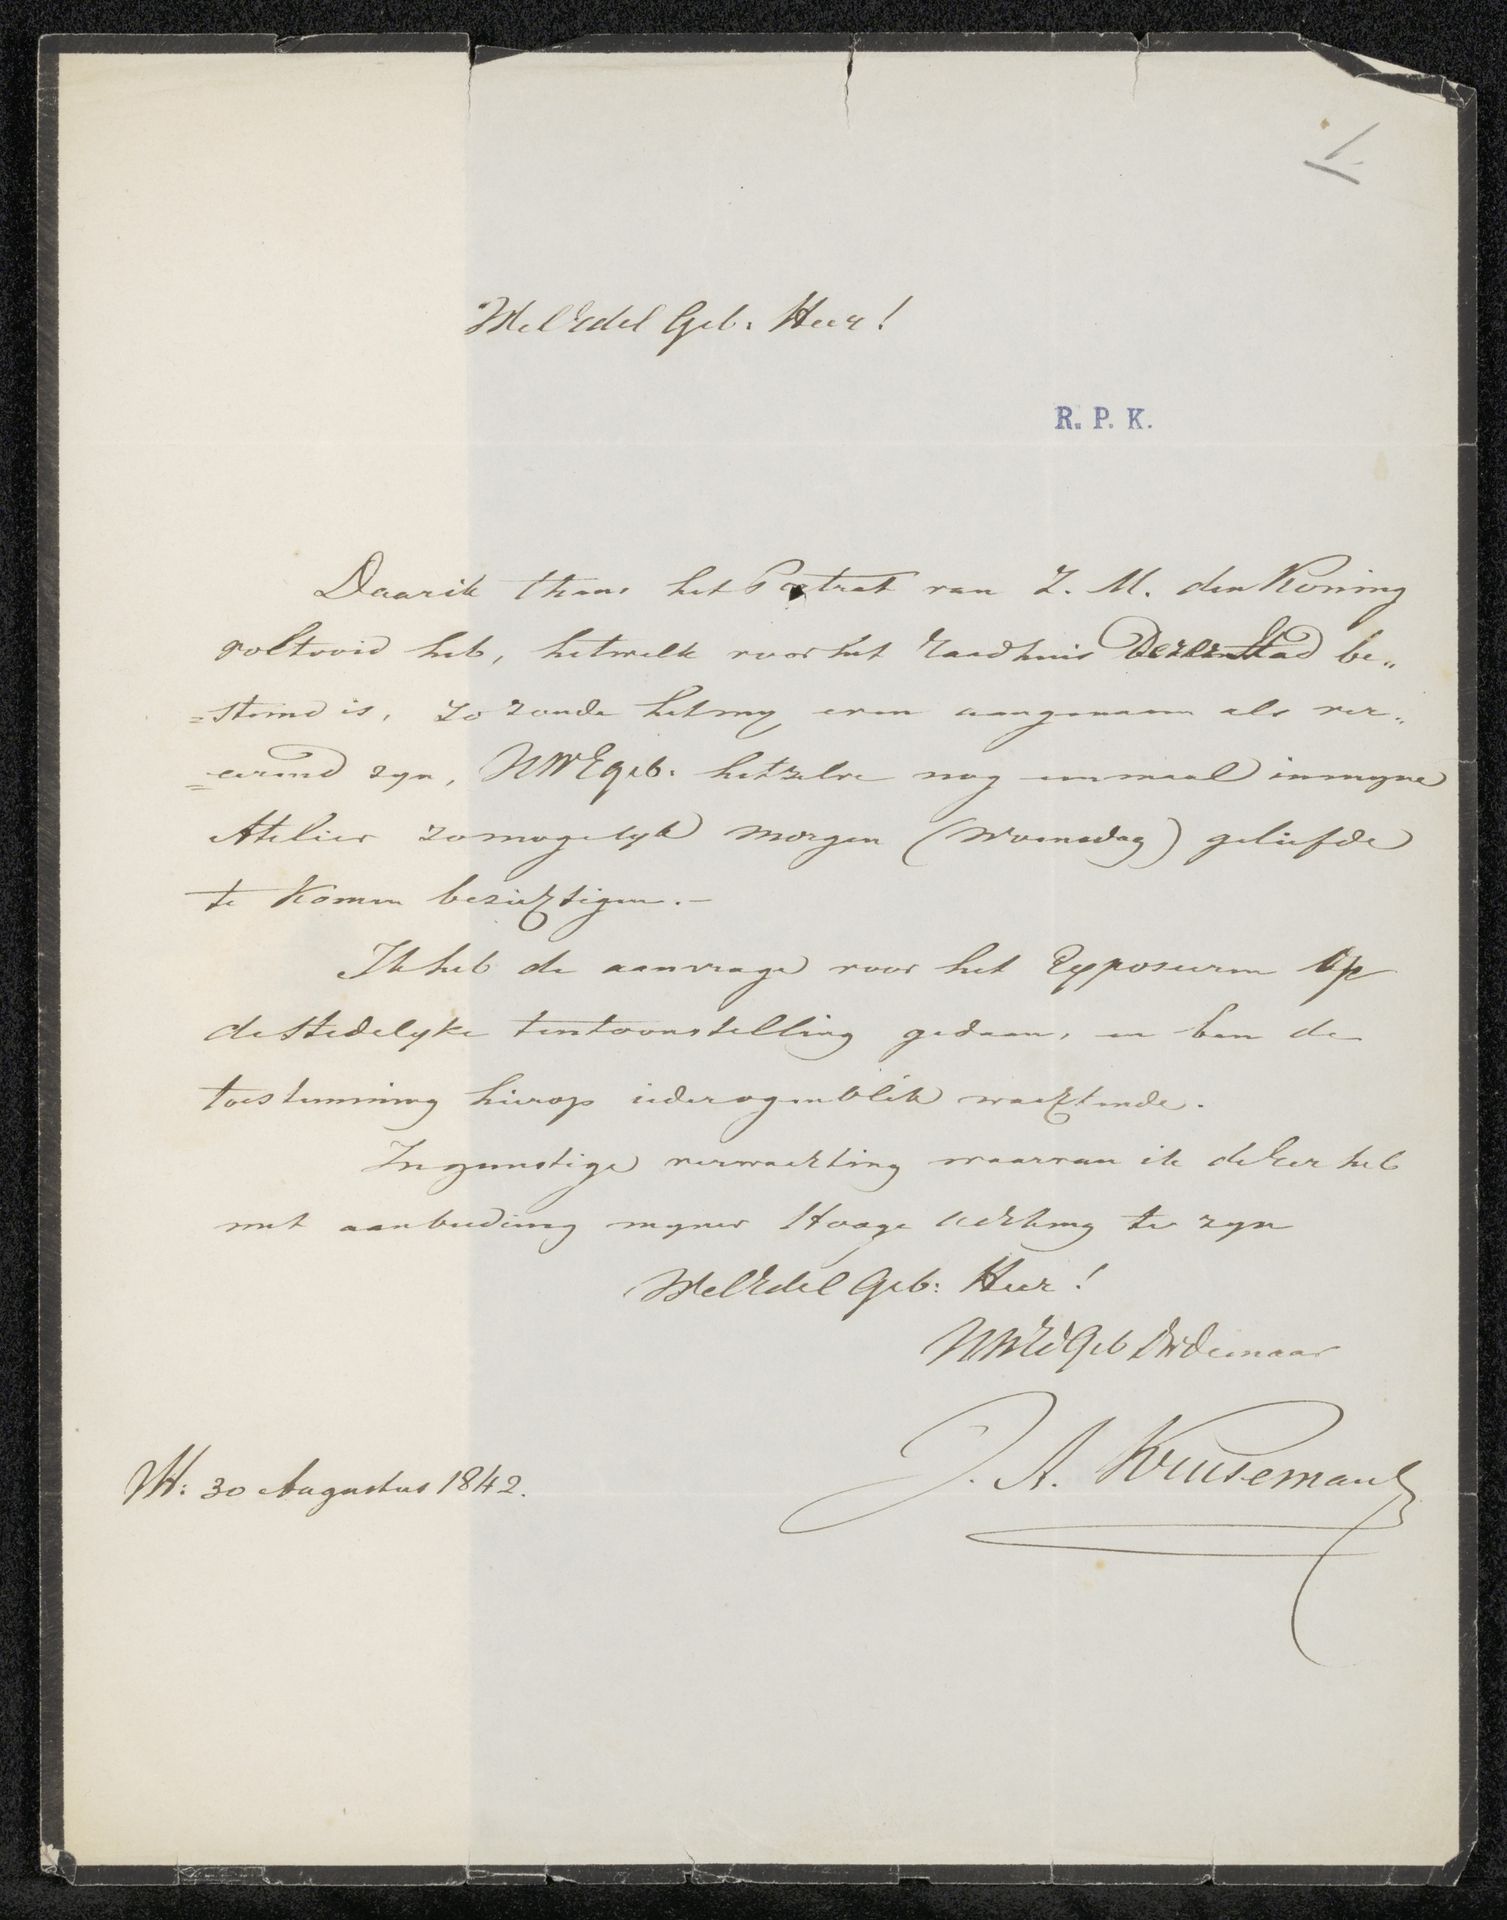 1.
WelEdel Geb: Heer!
R. P. K.
Daar ik thans het Portret van Z. M. den Koning
voltooid heb, hetwelk voor het raadhuis dezer Stad be„
=stemd is, zo zoude het my even aangenaam als ver„
=eerend zyn, UWEgeb: hetzelve nog eenmaal in myne
Atelier zo mogelyk morgen (Woensdag) geliefde
te komen bezichtigen.–
Ik heb de aanvrage voor het Exposeeren op
de Stedelyke tentoonstelling gedaan, en ben de
toestemming hierop ieder ogenblik wachtende.
In gunstige verwachting waarvan ik de Eer heb
met aanbieding myner Hooge achting te zyn
WelEdel Geb: Heer!
UWEdGeb Dvdienaar
J. A. Kruseman
VH: 30 Augustus 1842.